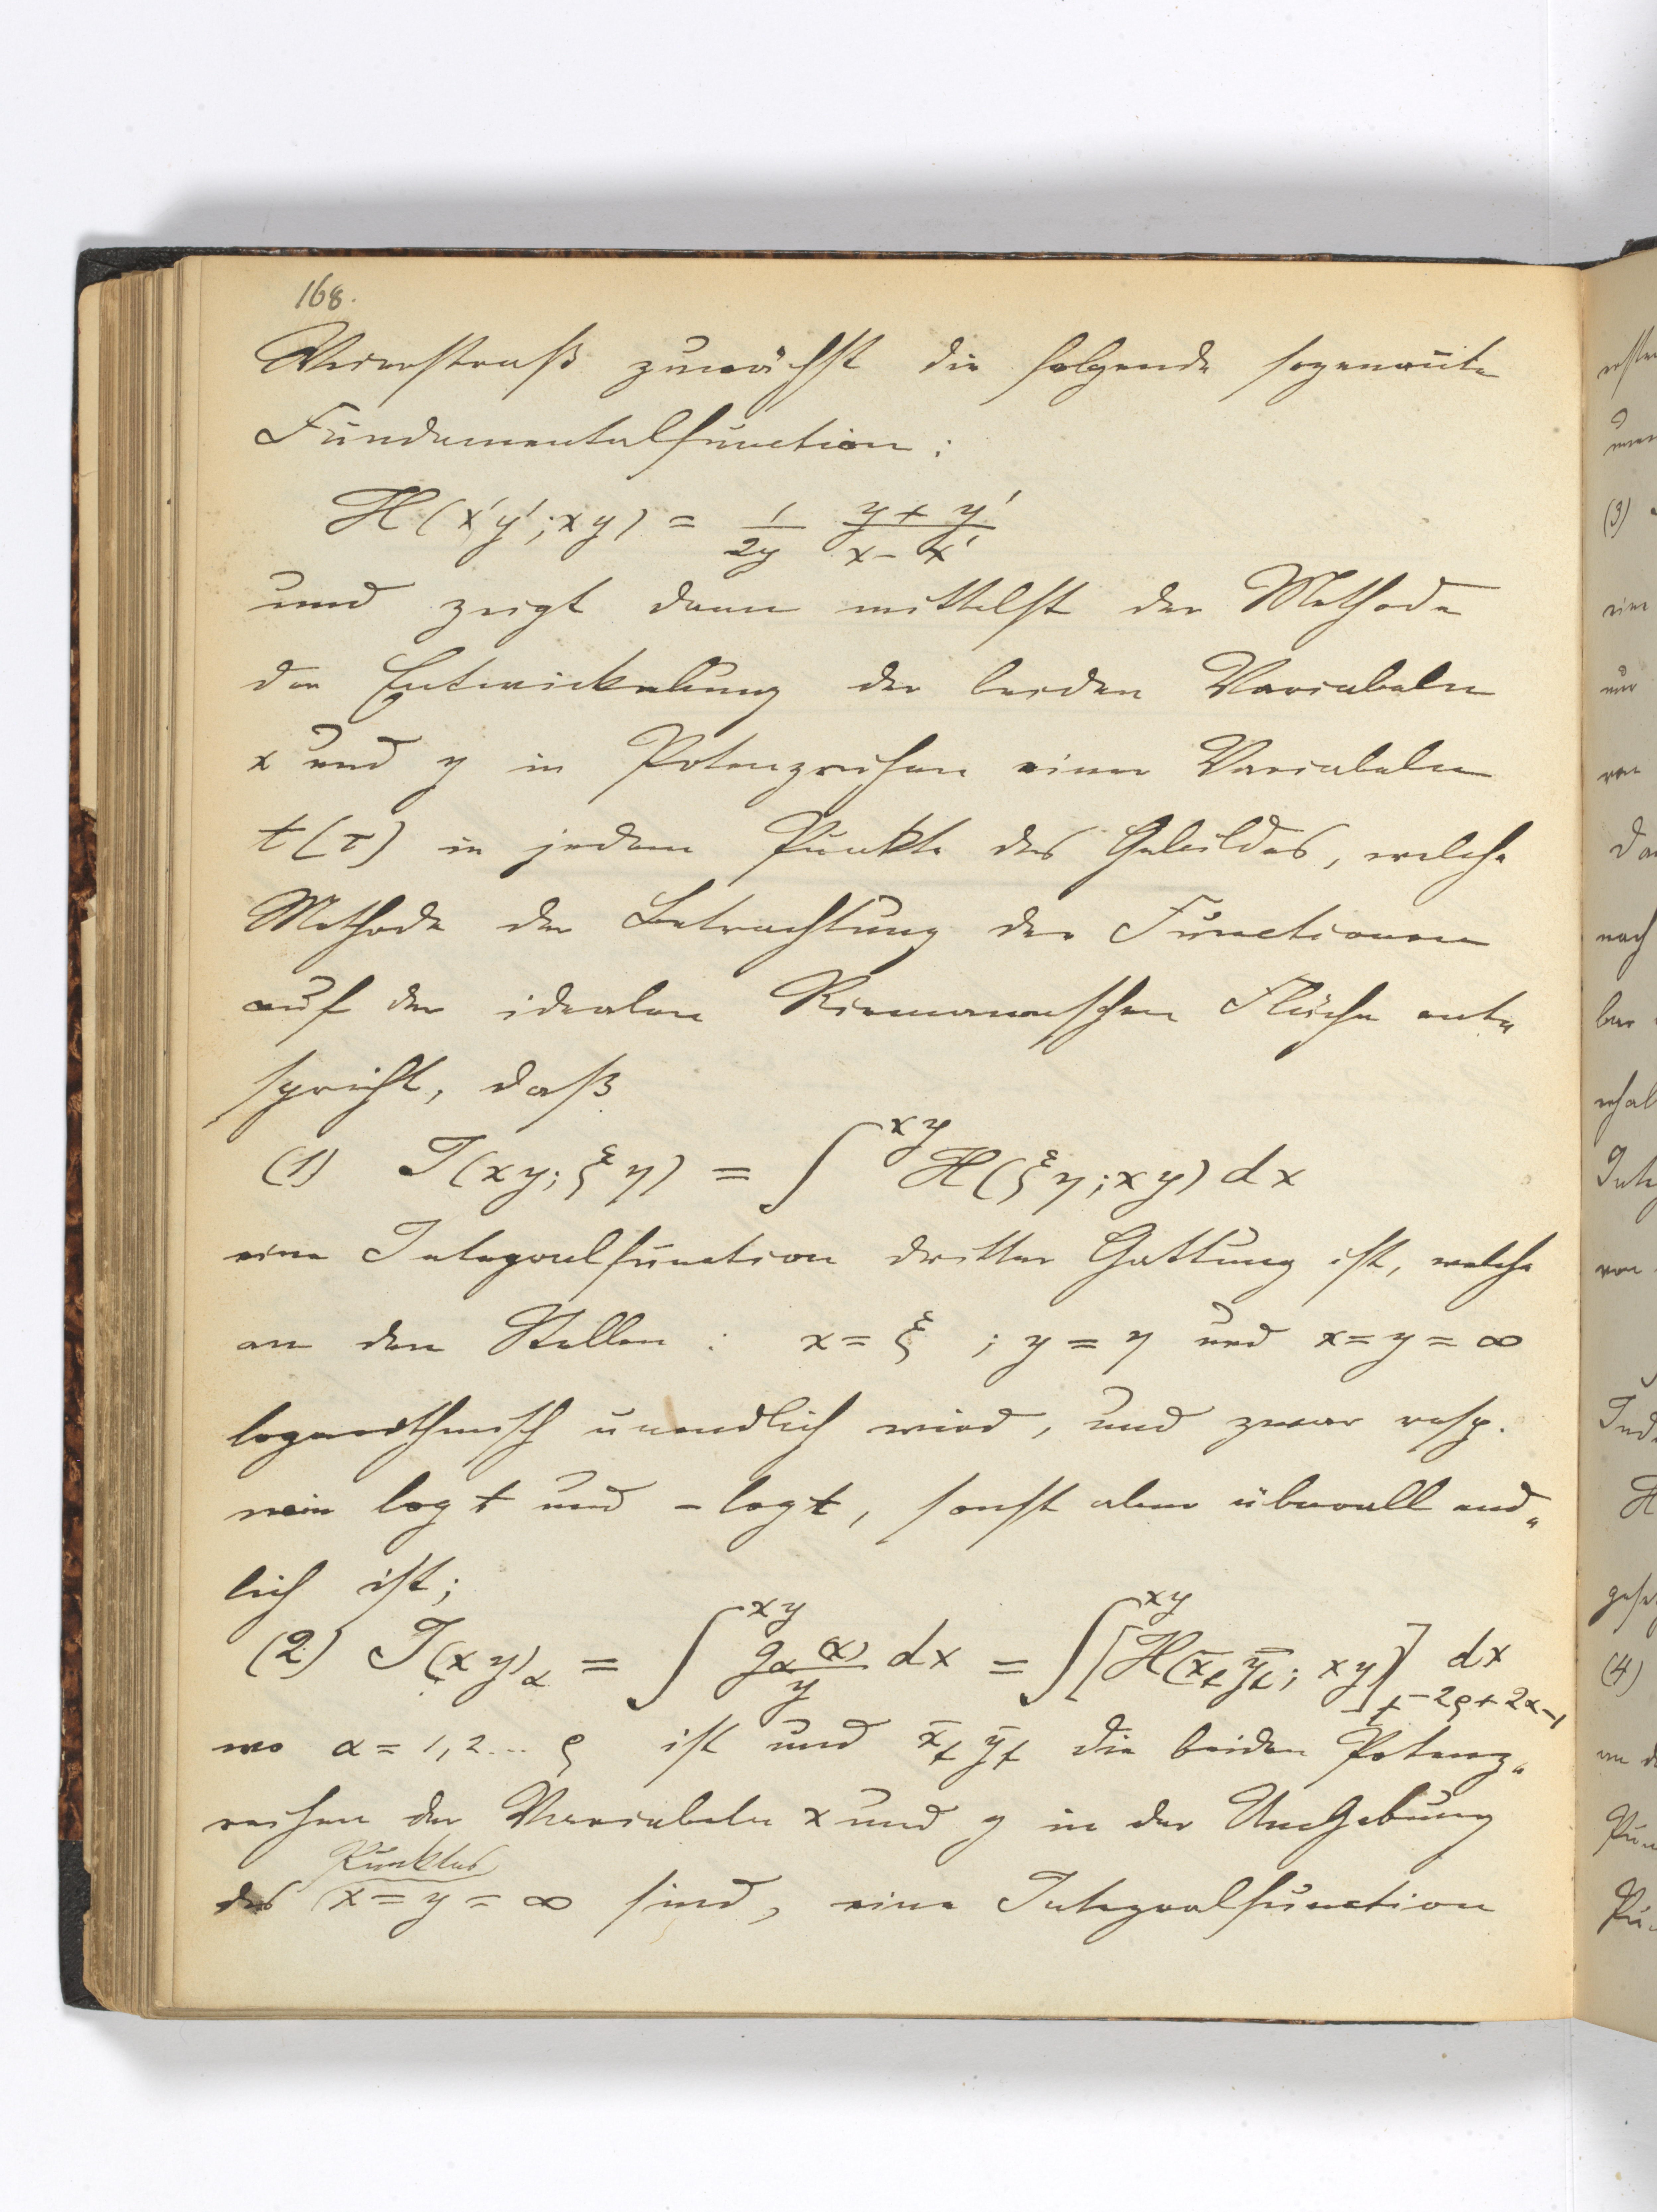 168.
Weierstraß zunächst die folgende sogenannte
Fundamentalfunction:
H(x'y';xy) = 1/2y (y+y')/(x-x')
und zeigt dann mittelst der Methode
der Entwickelung der beiden Variabeln
x und y in Potenzreihen einer Variabeln
t(τ) in jedem Punkte des Gebildes, welche
Methode der Betrachtung der Functionen
auf der idealen Riemannschen Fläche ent„
spricht, daß
(1) J(xy; ξη) = ∫^{xy} H(ξη; xy) dx
eine Integralfunction dritter Gattung ist, welche
an den Stellen: x=ξ ; y=η und x=y=∞
logarithmisch unendlich wird, und zwar resp.
wie log t und -log t, sonst aber überall end„
lich ist;
(2) J(xy)_α = ∫^{xy} g_α(x)/y dx = ∫^{xy} [H(x̄_t ȳ_t; xy)]_{t^{-2ρ+2α-1}} dx
wo α = 1,2... ρ ist und x̄_t ȳ_t die beiden Potenz„
reihen der Variabeln x und y in der Umgebung
Punktes
des x=y=∞ sind, eine Integralfunction
erste
(3)
eine
nur
von
nach
Inte
von
H
(4)